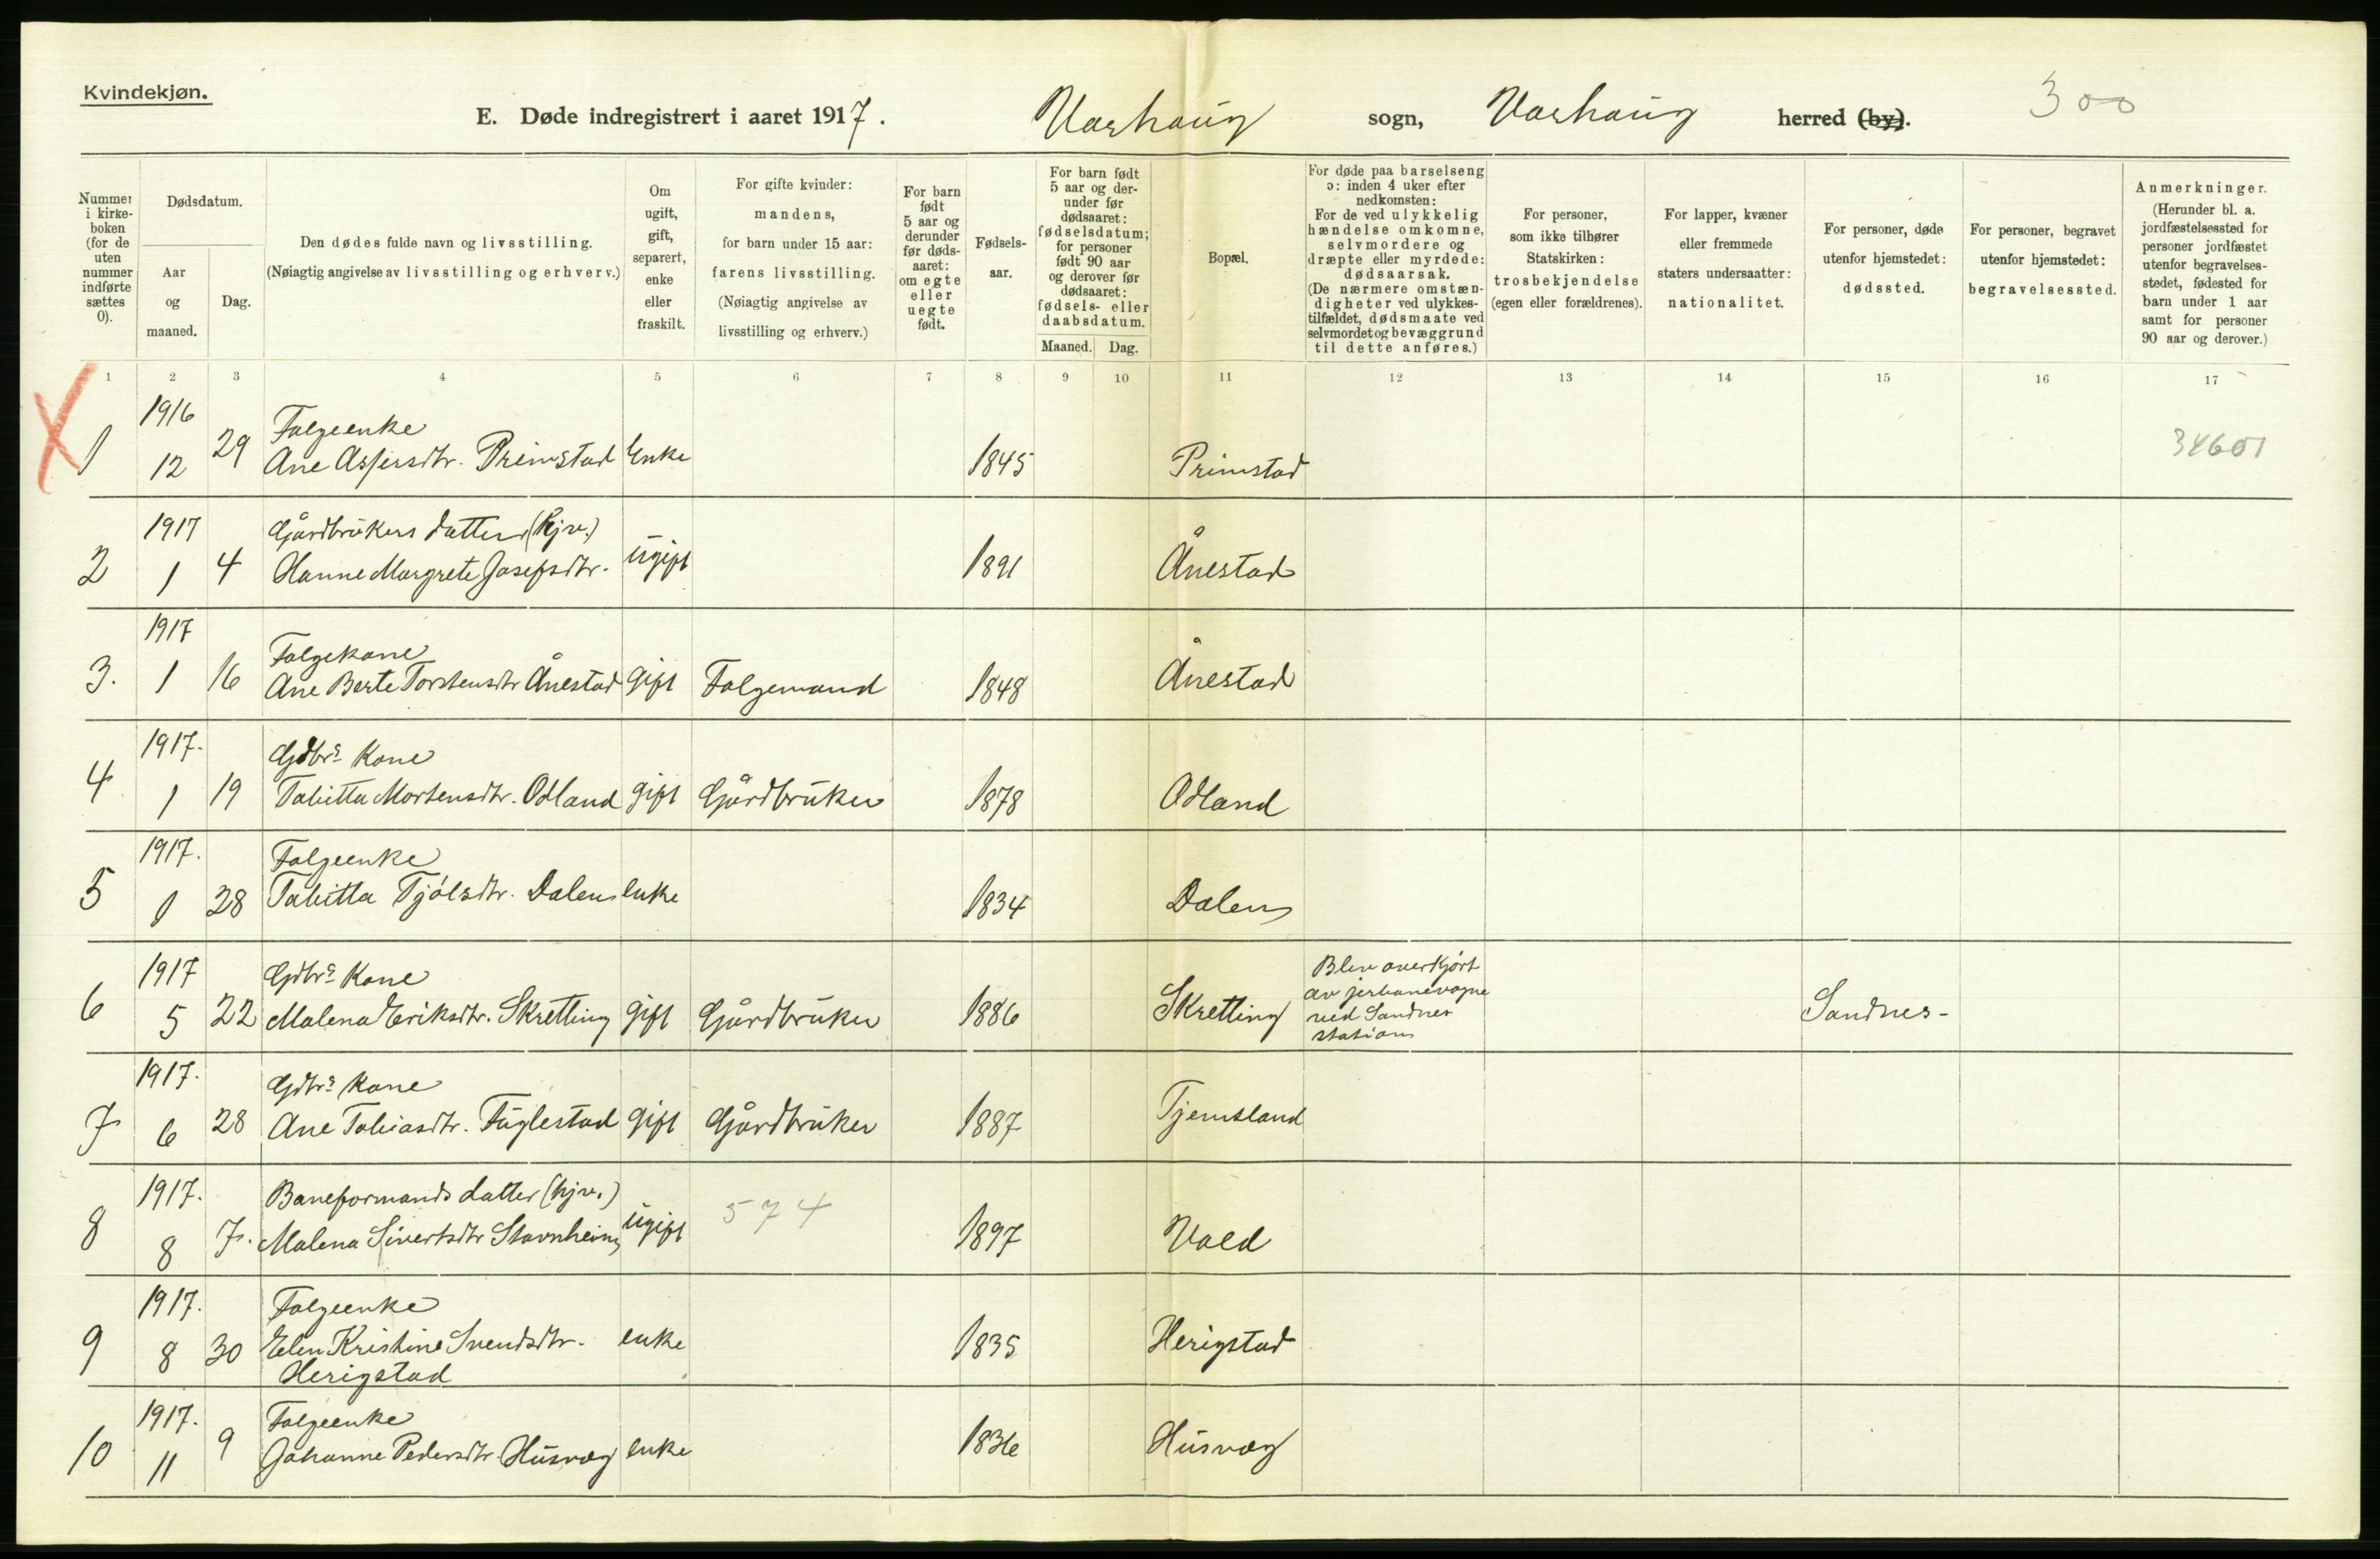 Kvindekjøn.
E. Døde indregistrert i aaret 1917. Varhaug sogn, Varhaug herred (by). 300
Nummer i kirkeboken (for de uten nummer indførte sættes 0).
Dødsdatum.
Aar og maaned.
Dag.
Den dødes fulde navn og livsstilling.
(Nøiagtig angivelse av livsstilling og erhverv.)
Om ugift, gift, separert, enke eller fraskilt.
For gifte kvinder:
mandens,
for barn under 15 aar:
farens livsstilling.
(Nøiagtig angivelse av
livsstilling og erhverv.)
For barn født 5 aar og derunder før dødsaaret: om egte eller uegte født.
Fødselsaar.
For barn født 5 aar og derunder før dødsaaret: fødselsdatum; for personer født 90 aar og derover før dødsaaret: fødsels- eller daabsdatum.
Maaned. Dag.
Bopæl.
For døde paa barselseng
ɔ: inden 4 uker efter
nedkomsten:
For de ved ulykkelig
hændelse omkomne,
selvmordere og
dræpte eller myrdede:
dødsaarsak.
(De nærmere omstæn-
digheter ved ulykkes-
tilfældet, dødsmaate ved
selvmordet og bevæggrund
til dette anføres.)
For personer,
som ikke tilhører
Statskirken:
trosbekjendelse
(egen eller forældrenes).
For lapper, kvæner
eller fremmede
staters undersaatter:
nationalitet.
For personer, døde
utenfor hjemstedet:
dødssted.
For personer, begravet
utenfor hjemstedet:
begravelsessted.
Anmerkninger.
(Herunder bl. a.
jordfæstelsessted for
personer jordfæstet
utenfor begravelses-
stedet, fødested for
barn under 1 aar
samt for personer
90 aar og derover.)
1 2 3 4 5 6 7 8 9 10 11 12 13 14 15 16 17
1916 Folgeenke
1 12 29 Ane Assersdtr. Primstad Enke 1845 Primstad 34601
1917 Gårdbrukers datter (hjv.)
2 1 4 Hanne Margrete Josefsdtr. ugift 1891 Ånestad
1917 Folgekone
3. 1 16 Ane Berte Torstensdtr Ånestad gift Folgemand 1848 Ånestad
1917. Gdbrs Kone
4 1 19 Tabitta Mortensdtr. Odland gift Gårdbruker 1878 Odland
1917. Folgeenke
5 1 28 Tabitta Tjólsdtr. Dalen enke 1834 Dalen
1917 Gdbrs Kone
6 5 22 Malena Eriksdtr. Skretting gift Gårdbruker 1886 Skretting
Blev overkjört
av jerbanevogne
ved Sandnes
station
Sandnes-
1917. Gdbrs Kone
7 6 28 Ane Tobiasdtr. Fuglestad gift Gårdbruker 1887 Tjemsland
1917. Baneformands datter (hjv.)
8 8 7. Malena Sivertsdtr Stavnheim ugift 574 1897 Vold
1917. Folgeenke
9 8 30 Elen Kristine Svendsdtr. enke 1835 Herigstad
Herigstad
1917. Folgeenke
10 11 9 Johanne Pedersdtr. Husvæg enke 1836 Husvæg